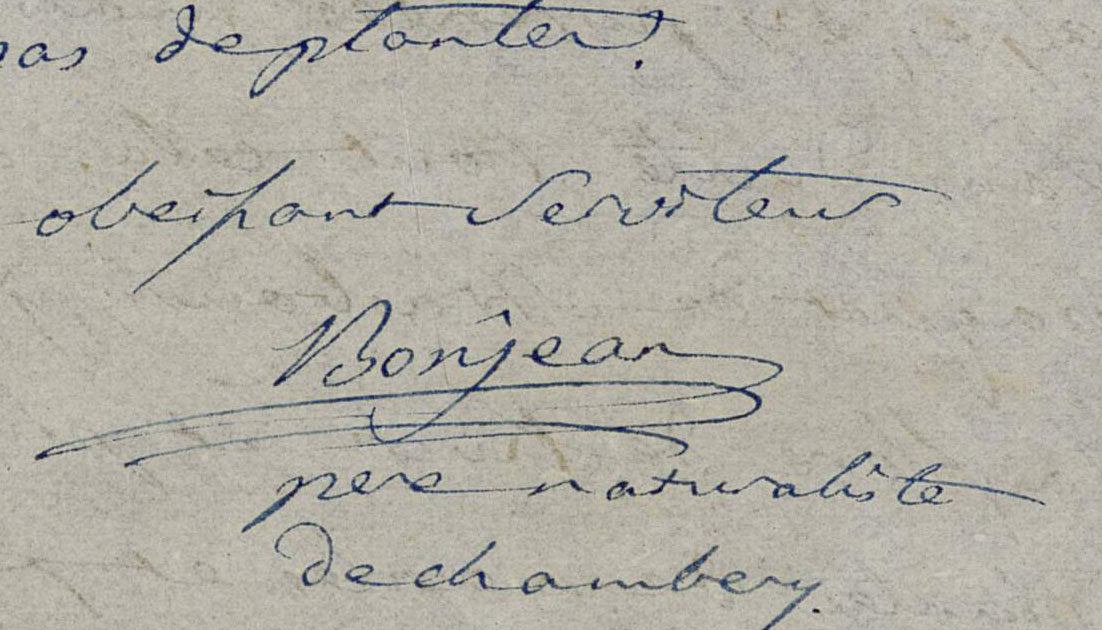 pas deplanter.
obeissant Serviteur
Bonjean
pere naturaliste
de chambery.